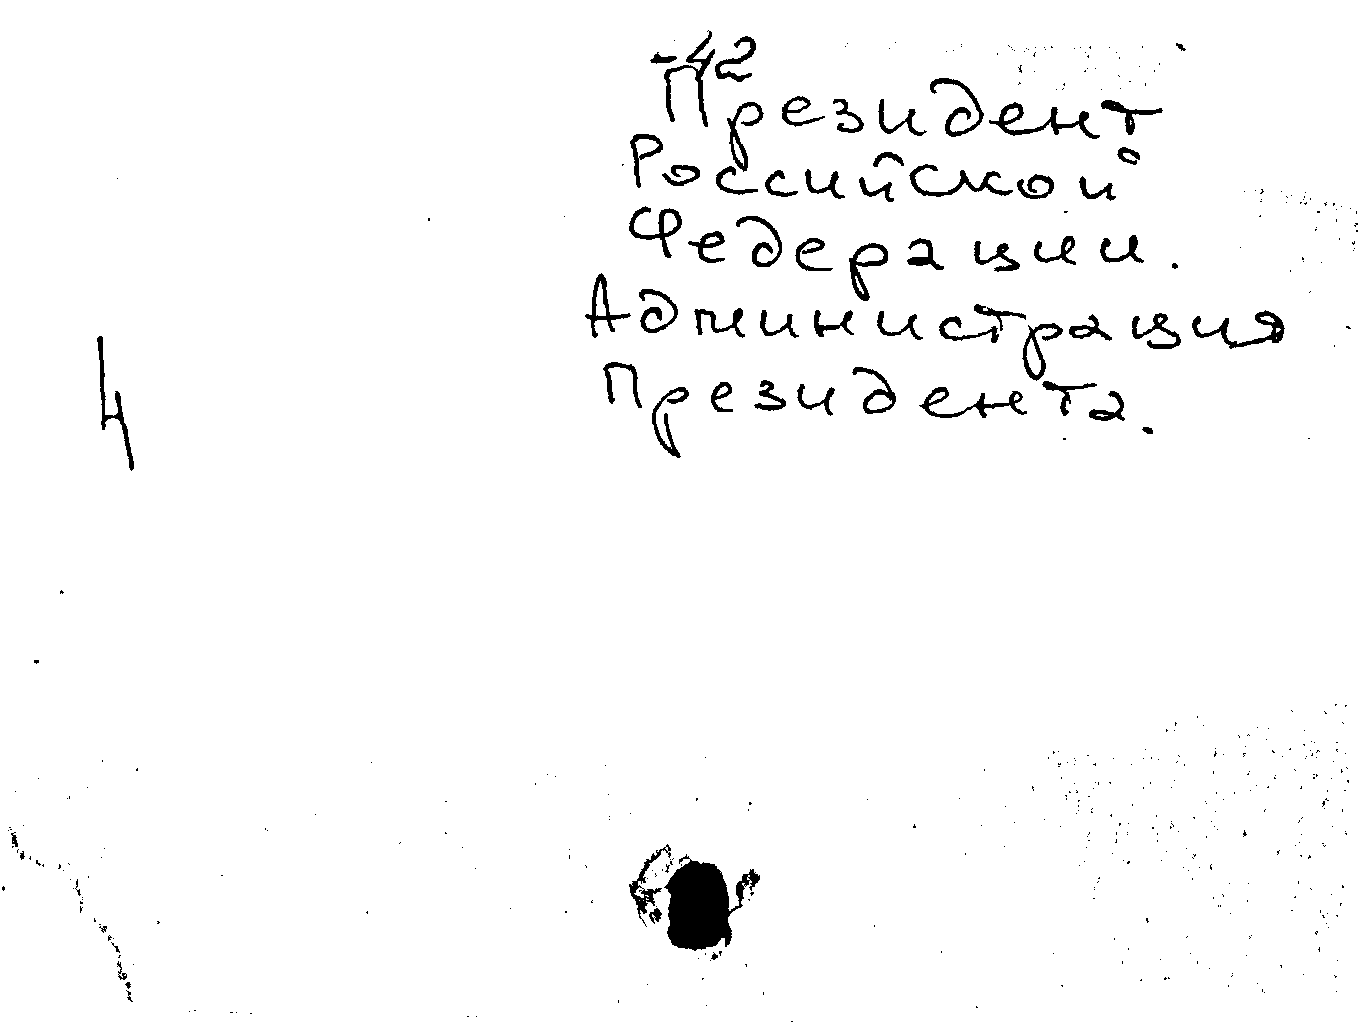 -42
Президент
Российской
Федерации.
Администрация
Президента.
4